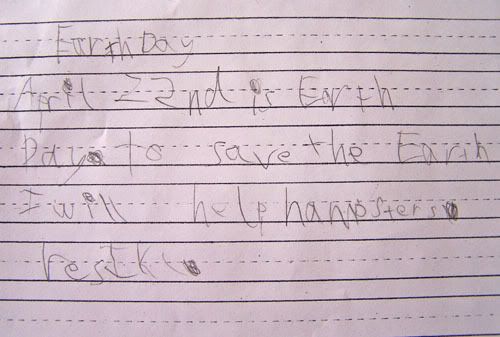 Earth Day
April 22nd is Earth
Day. to save the Earth
I will help hampsters.